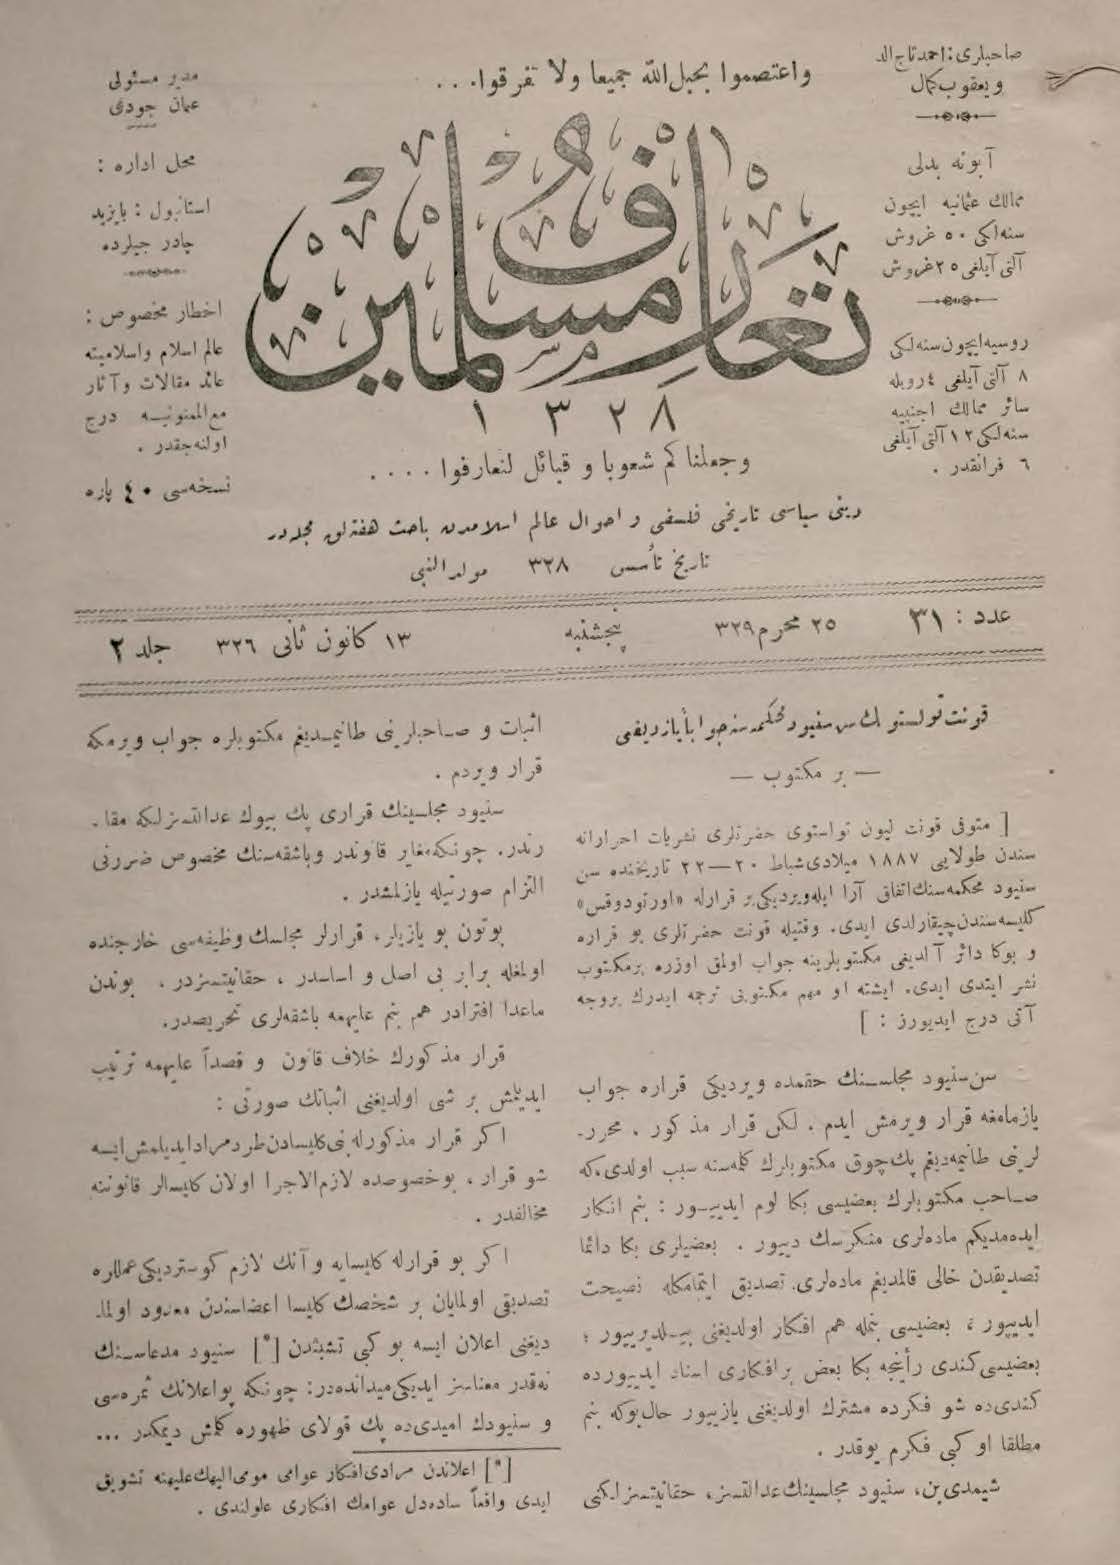 صاحبلری : احمد تاج الد
و یعقوب كمال
آبونه بدلی
ممالك عثمانیه ایچون
سنه‌لكی ٥٠ غروش
آلتی آیلغی ٢٥ غروش
روسیه ایچون سنه لكی
٨ آلتی آیلغی ٤ روبله
سائر ممالك اجنبیه
سنه لكی ١٢ آلتی آیلغی
٦ فرانقدر .
واعتصموا بحبل الله جمیعا ولا تفرقوا . . .
تعارف مسلمین
١٣٢٨
وجعلناكم شعوبا و قبائل لتعارفوا . . . .
دینی سیاسی تاریخی فلسفی و احوال عالم اسلامدن باحث هفته لق مجله در
تاریخ تأسس ٣٢٨ مولد النبی
مدیر مسئولی
عثمان جودی
محل اداره :
استانبول : بایزید
چادر جیلرده
اخطار مخصوص :
عالم اسلام واسلامیته
عائد مقالات و آثار
مع الممنونیه درج
اولنه جقدر .
نسخه سی ٤٠ پاره
عدد : ٣١ ٢٥ محرم ٣٢٩ پنجشنبه ١٣ كانون ثانی ٣٢٦ جلد ٢
قونت تولستویك سن سنیود محكمه سنه جواباً یازدیغی
— بر مكتوب —
[ متوفی قونت لیون تولستوی حضرتلری نشریات احرارانه
سندن طولایی ١٨٨٧ میلادی شباط ٢٠—٢٢ تاریخنده سن
سنیود محكمه سنك اتفاق آرا ایله ویردیكی بر قرارله «اورتودوقس»
كلیسه سندن چیقارلدی ایدی. وقتیله قونت حضرتلری بو قراره
و بوكا دائر آلدیغی مكتوبلرینه جواب اولمق اوزره بر مكتوب
نشر ایتدی ایدی. ایشته او مهم مكتوبی ترجمه ایدرك بروجه
آتی درج ایدیورز : ]
سن سنیود مجلسنك حقمده ویردیكی قراره جواب
یازمامغه قرار ویرمش ایدم . لكن قرار مذكور ، محرر-
لرینی طانیمه‌دیغم پك چوق مكتوبلرك كلمه سنه سبب اولدی، كه
صاحب مكتوبلرك بعضیسی بكا لوم ایدییور : بنم انكار
ایده‌مدیكم ماده‌لری منكرسك دییور . بعضیلری بكا دائما
تصدیقدن خالی قالمدیغم ماده‌لری تصدیق ایتمامكله نصیحت
ایدییور ، بعضیسی بنمله هم افكار اولدیغنی بیلدیرییور ؛
بعضیسی كندی رأینجه بكا بعض برافكاری اسناد ایدییورده
كندی‌ده شو فكرده مشترك اولدیغنی یازییور حال بوكه بنم
مطلقا او كبی فكرم یوقدر .
شیمدی بن، سنیود مجلسینك عدالتسز، حقانیتسزلكنی
اثبات و صاحبلرینی طانیمدیغم مكتوبلره جواب ویرمكه
قرار ویردم .
سنیود مجلسینك قراری پك بیوك عدالتسزلكه مقا-
رندر. چونكه مغایر قانوندر وباشقه‌سنك مخصوص ضررنی
التزام صورتیله یازلمشدر .
بوتون بو یازیلر، قرارلر مجلسك وظیفه‌سی خارجنده
اولمغله برابر بی اصل و اساسدر ، حقانیتسزدر، بوندن
ماعدا افترادر هم بنم علیهمه باشقه‌لری تحریصدر.
قرار مذكورك خلاف قانون و قصداً علیهمه ترتیب
ایدیلمش بر شی اولدیغنی اثباتك صورتی :
اكر قرار مذكورله بنی كلیسادن طرد مراد ایدیلمش ایسه
شو قرار ، بوخصوصده لازم الاجرا اولان كلیسالر قانوننه
مخالفدر .
اكر بو قرارله كلیسایه و آنك لازم كوستردیكی عمللره
تصدیقی اولمایان بر شخصك كلیسا اعضاسندن معدود اولما-
دیغنی اعلان ایسه بو كبی تشبثدن [*] سنیود مدعاسنك
نه‌قدر معناسز ایدیكی میدانده‌در: چونكه بو اعلانك ثمره‌سی
و سنیودك امیدی‌ده پك قولای ظهوره كلمش دیمكدر ...
[*] اعلاندن مرادی افكار عوامی مومی الیهك علیهنه تشویق
ایدی واقعاً ساده‌دل عوامك افكاری علولندی .